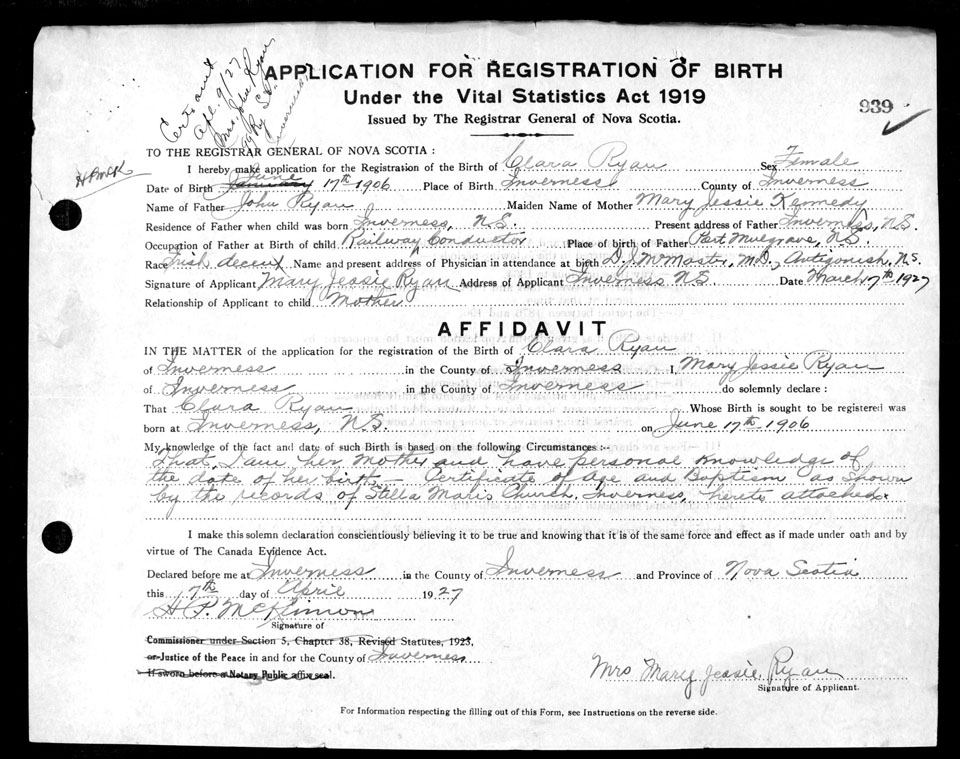 Cert sent
Apl. 9/27
Mrs. John Ryan
Ry St.
Inverness
APPLICATION FOR REGISTRATION OF BIRTH
Under the Vital Statistics Act 1919
Issued by The Registrar General of Nova Scotia.
939
TO THE REGISTRAR GENERAL OF NOVA SCOTIA :
I hereby make application for the Registration of the Birth of Clara Ryan Sex Female
Date of Birth January June 17th 1906 Place of Birth Inverness County of Inverness
Name of Father John Ryan Maiden Name of Mother Mary Jessie Kennedy
Residence of Father when child was born Inverness, N.S. Present address of Father Inverness, N.S.
Occupation of Father at Birth of child Railway Conductor Place of birth of Father Port Mulgrave, N.S.
Race Irish decent Name and present address of Physician in attendance at birth D. J. McMaster, M.D., Antigonish, N.S.
Signature of Applicant Mary Jessie Ryan Address of Applicant Inverness N.S. Date March 17th 1927
Relationship of Applicant to child Mother
AFFIDAVIT
IN THE MATTER of the application for the registration of the Birth of Clara Ryan
of Inverness in the County of Inverness I, Mary Jessie Ryan
of Inverness in the County of Inverness do solemnly declare :
That Clara Ryan Whose Birth is sought to be registered was
born at Inverness, N.S. on June 17th 1906
My knowledge of the fact and date of such Birth is based on the following Circumstances :
That I am her Mother and have personal knowledge of
the date of her birth - Certificate of Age and Baptism as shown
by the records of Stella Maris Church, Inverness, hereto attached.
I make this solemn declaration conscientiously believing it to be true and knowing that it is of the same force and effect as if made under oath and by
virtue of The Canada Evidence Act.
Declared before me at Inverness in the County of Inverness and Province of Nova Scotia
this 7th day of April 1927
H P. McKinnon
Signature of
Commissioner under Section 5, Chapter 38, Revised Statutes, 1923,
or Justice of the Peace in and for the County of Inverness
If sworn before a Notary Public affix seal.
Mrs Mary Jessie Ryan
Signature of Applicant.
For Information respecting the filling out of this Form, see Instructions on the reverse side.